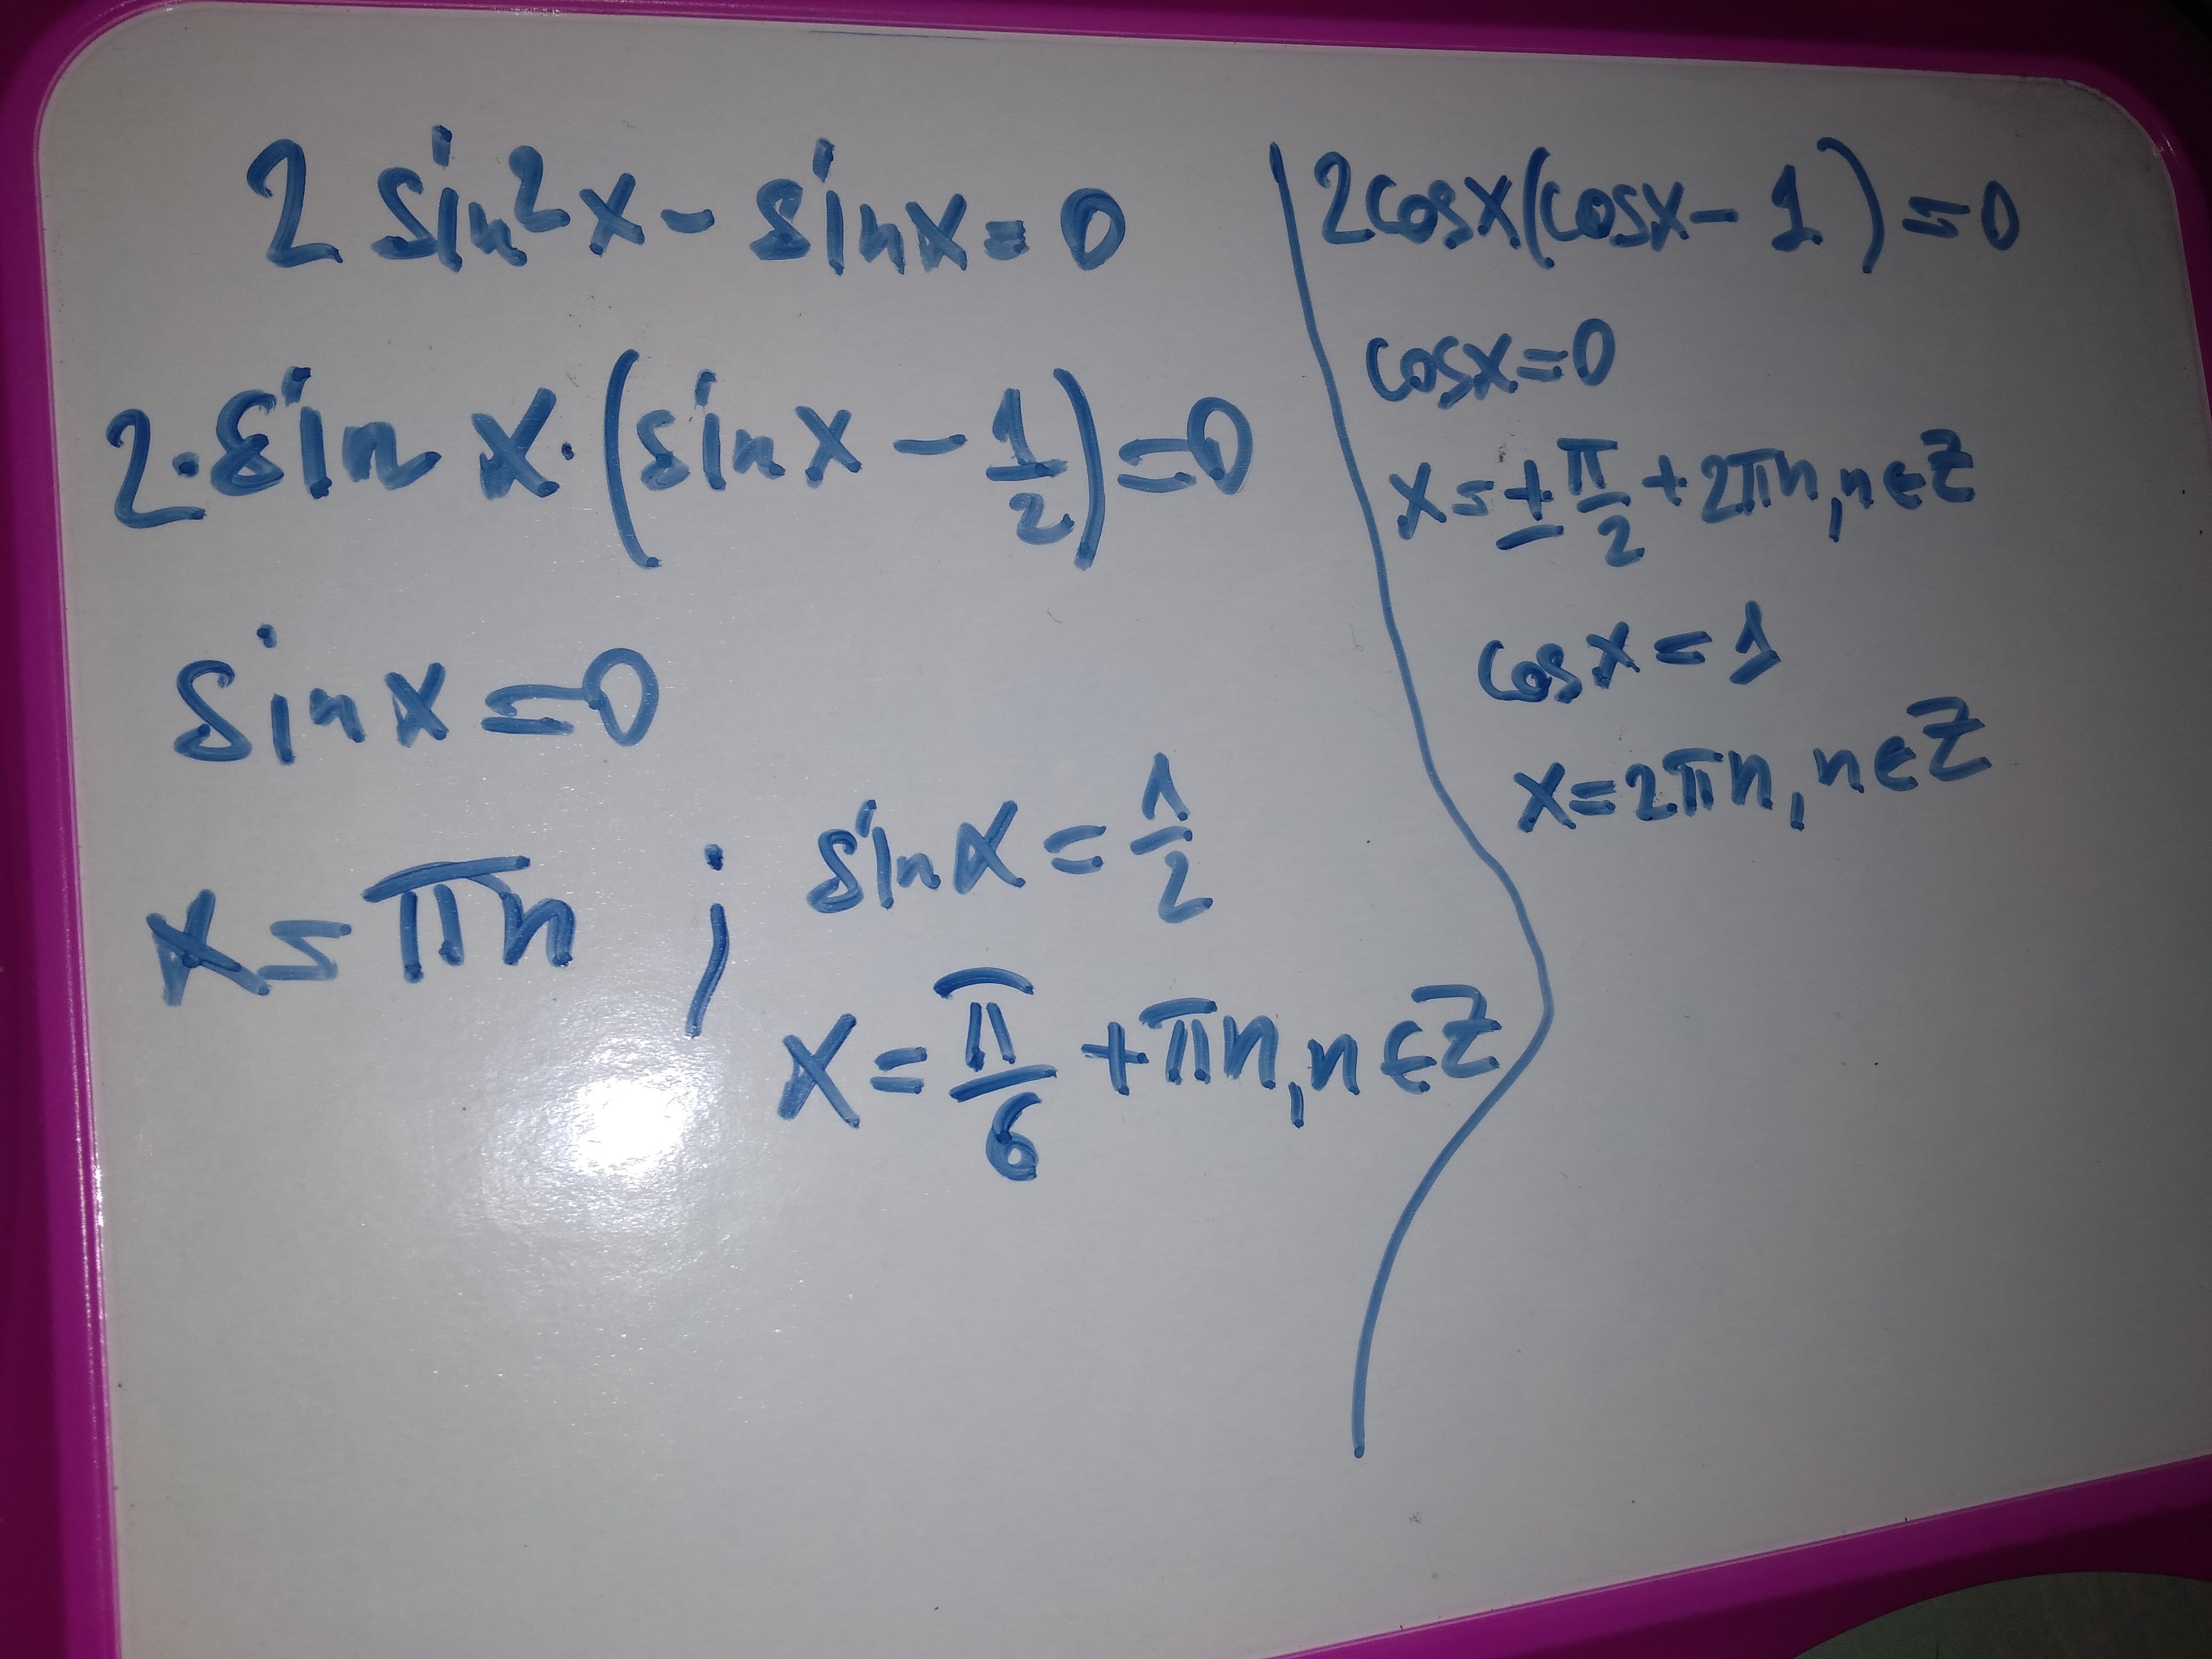 2 sin²x - sinx = 0
2·sin x·(sinx - 1/2) = 0
sinx = 0
x = πn ;
sinx = 1/2
x = π/6 + πn, n∈Z
2cosx(cosx - 1) = 0
cosx = 0
x = ± π/2 + 2πn, n∈Z
cosx = 1
x = 2πn, n∈Z